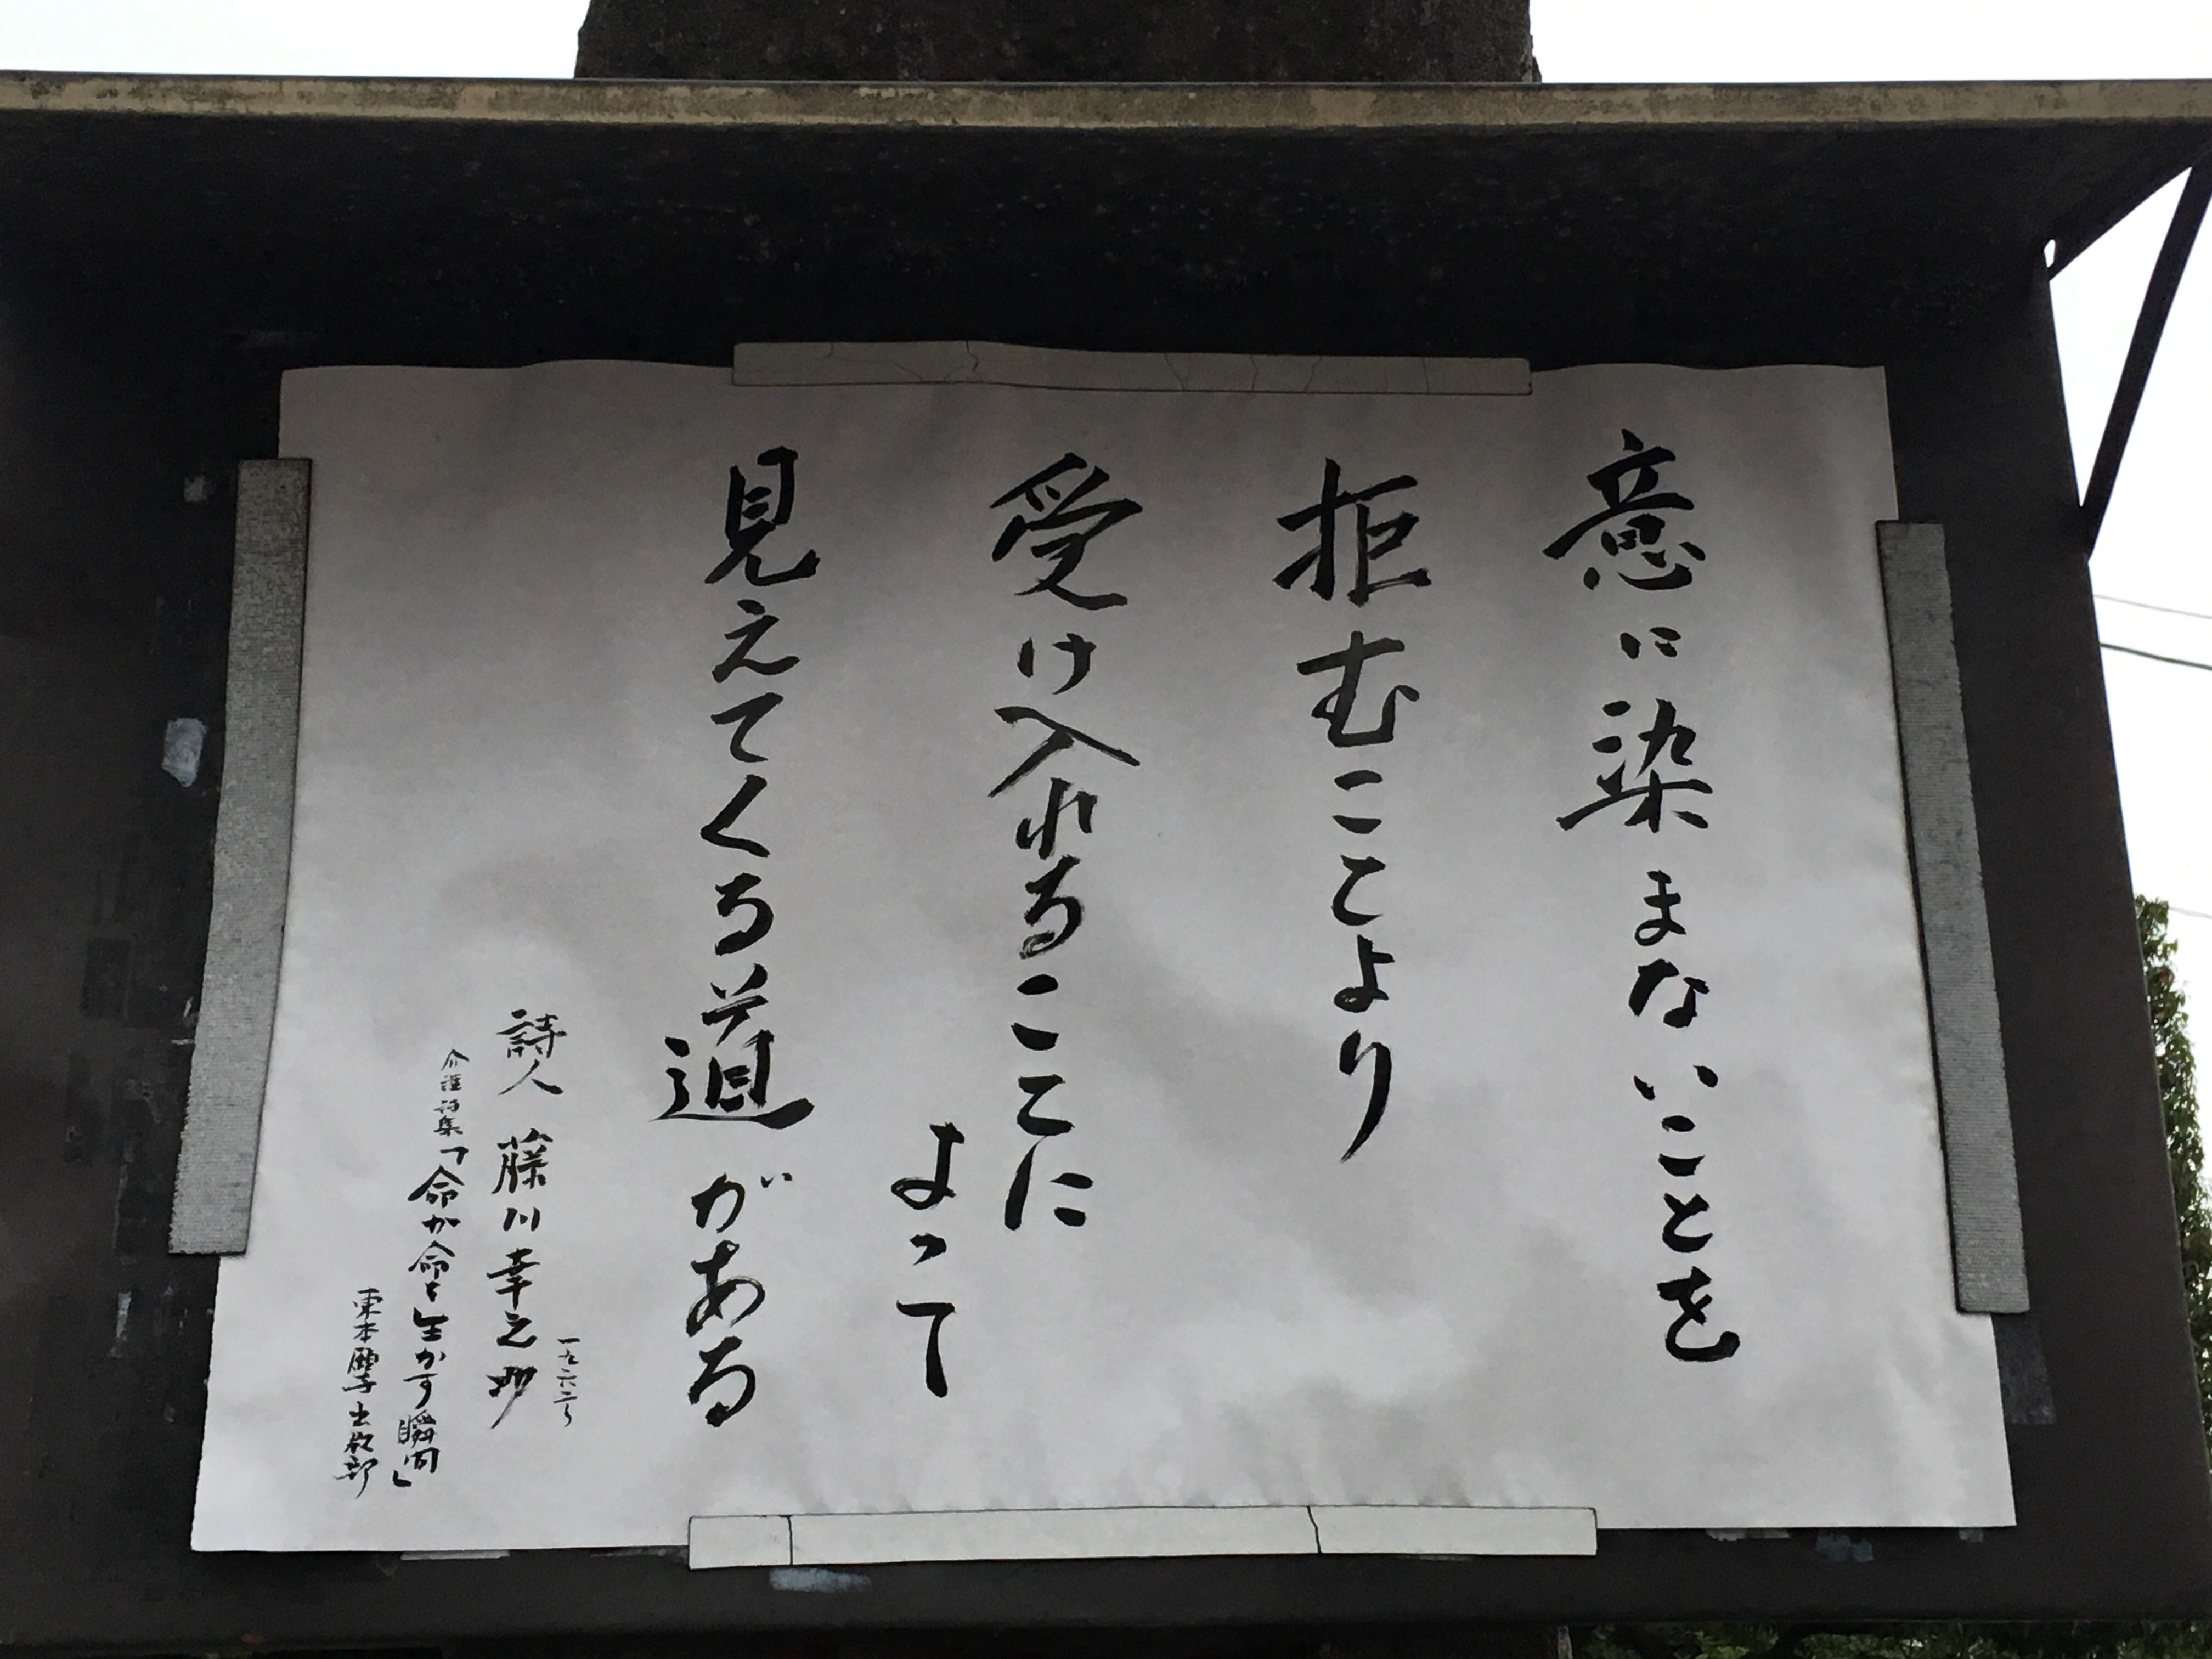 意に染まないことを
拒むことより
受け入れることに
よって
見えてくる道がある
一九六二〜
詩人 藤川幸之助
介護詩集「命が命を生かす瞬間」
東本願寺出版部